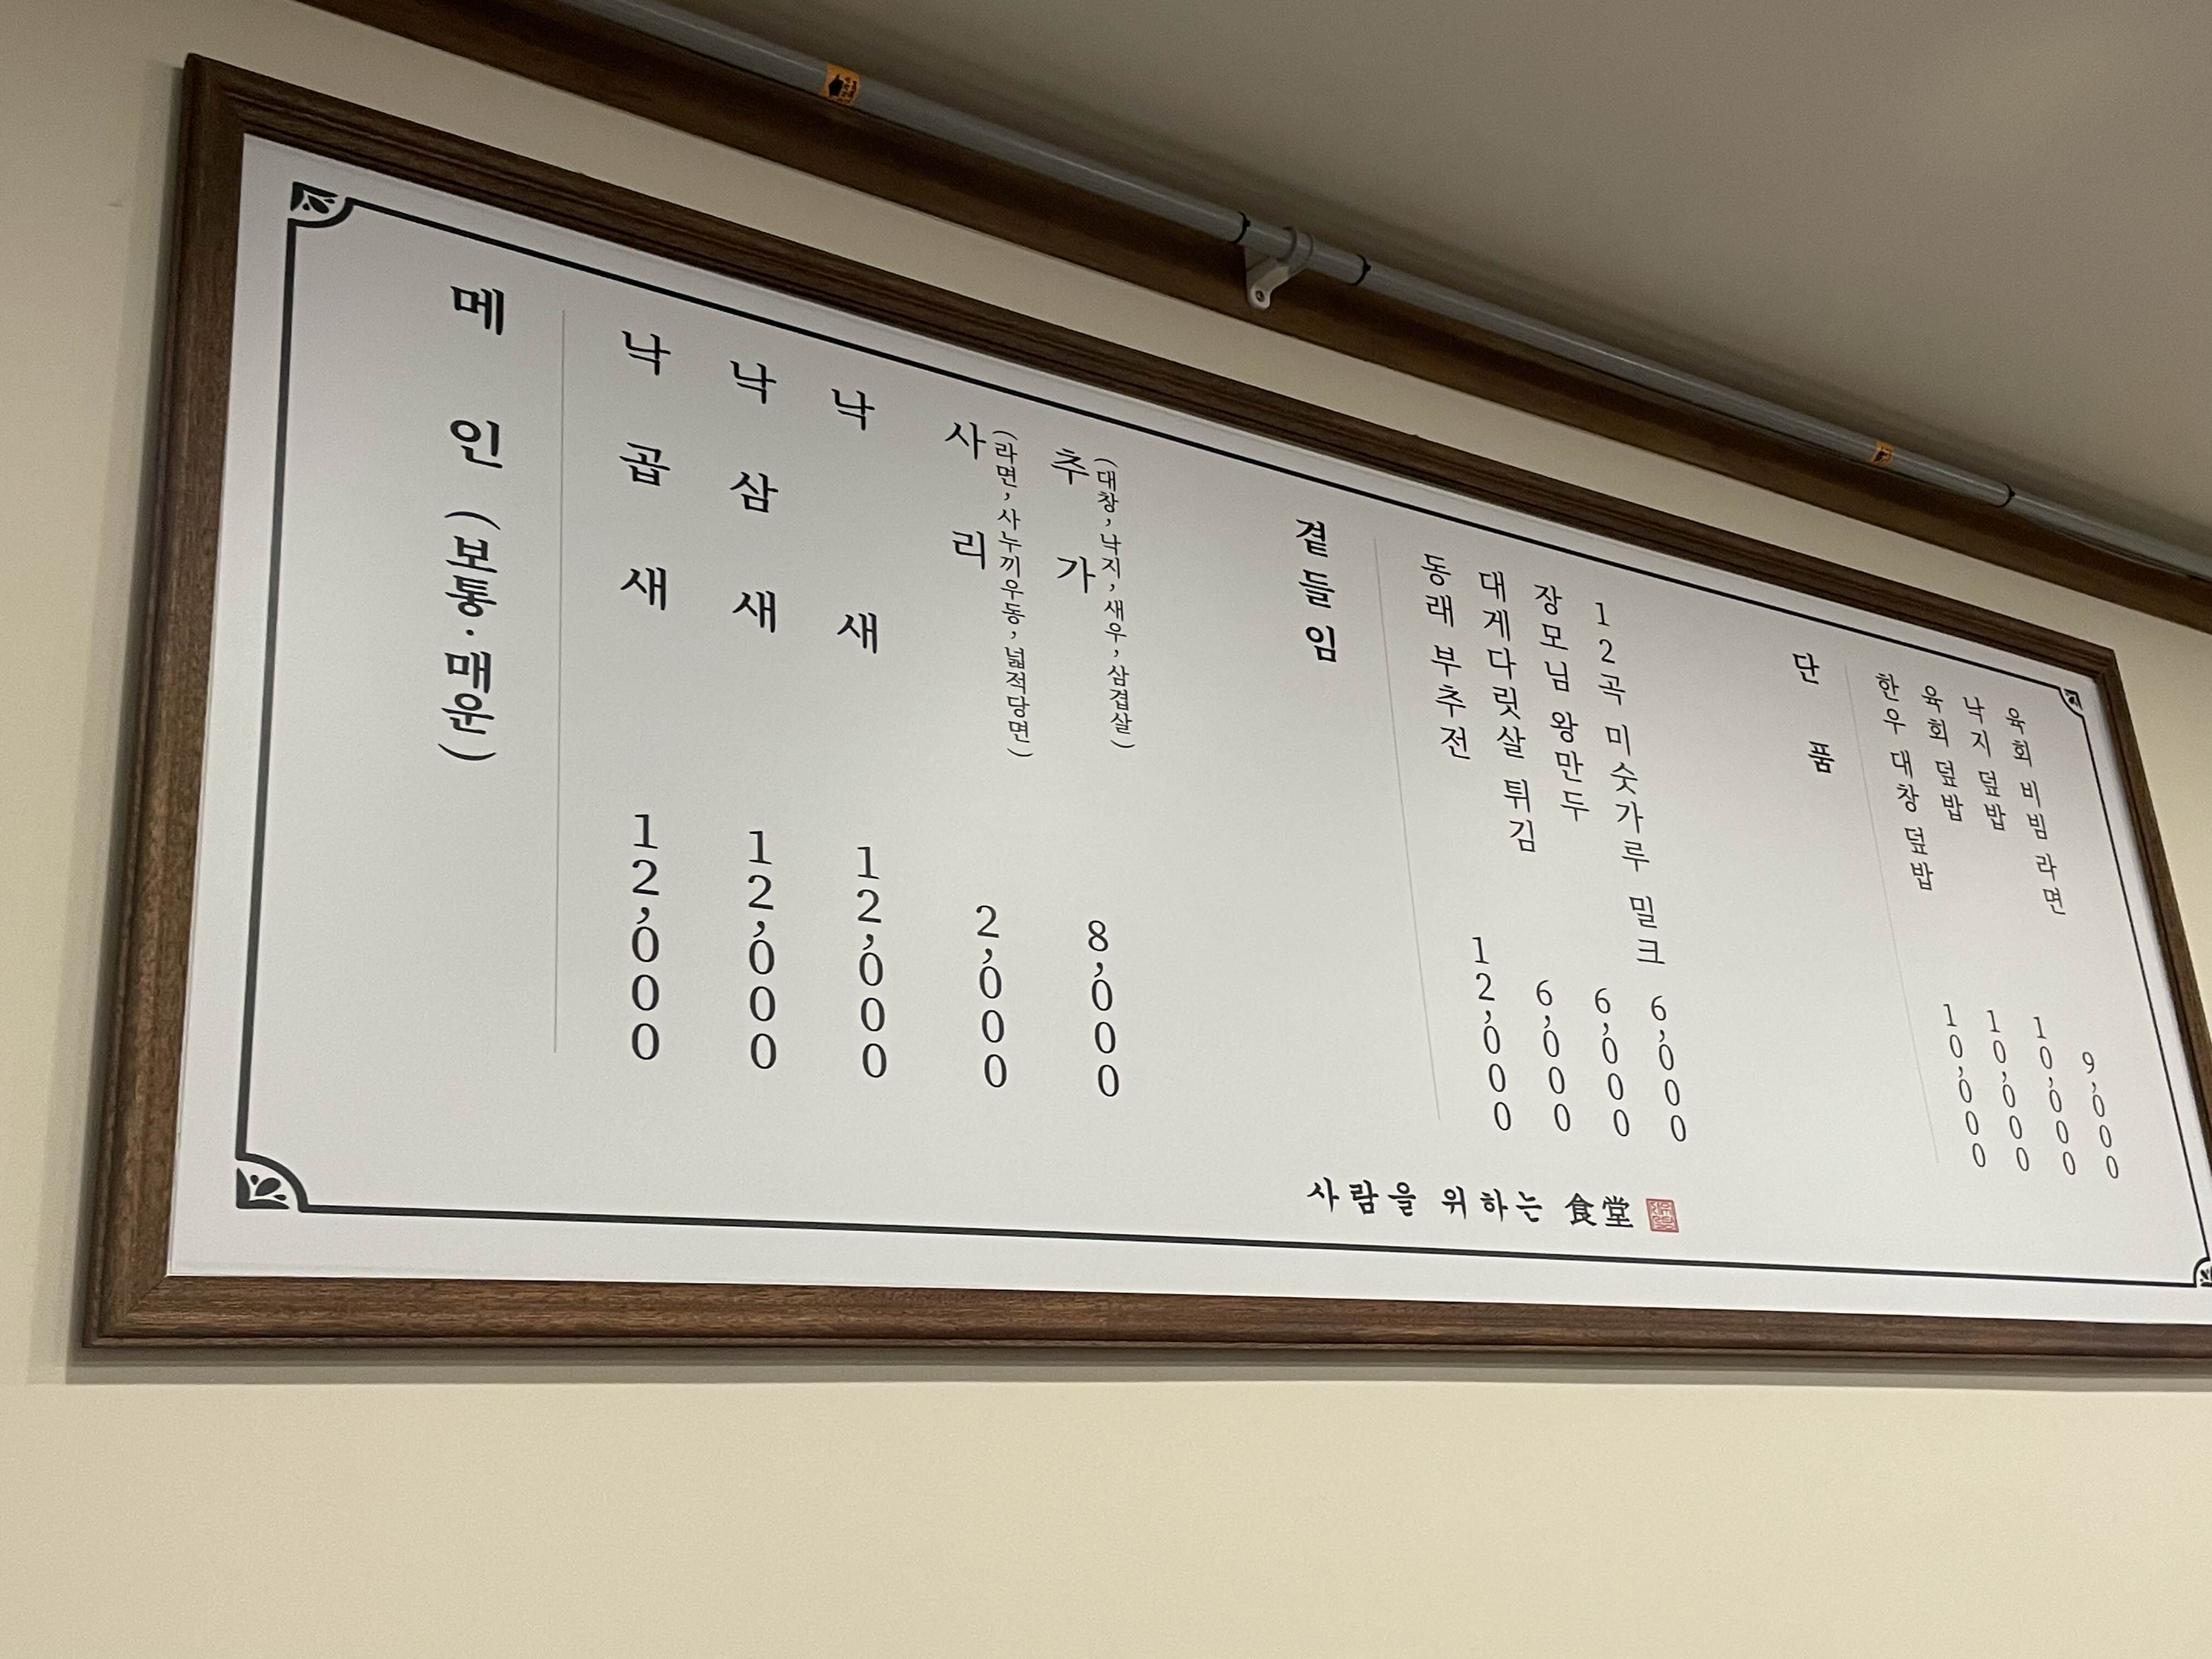 메인 (보통·매운)
낙곱새 12,000
낙삼새 12,000
낙새 12,000
사리 2,000
(라면, 사누끼우동, 넓적당면)
추가 8,000
(대창, 낙지, 새우, 삼겹살)
곁들임
동래 부추전 12,000
대게다릿살 튀김 6,000
장모님 왕만두 6,000
12곡 미숫가루 밀크 6,000
단품
한우 대창 덮밥 10,000
육회 덮밥 10,000
낙지 덮밥 10,000
육회 비빔 라면 9,000
사람을 위하는 食堂